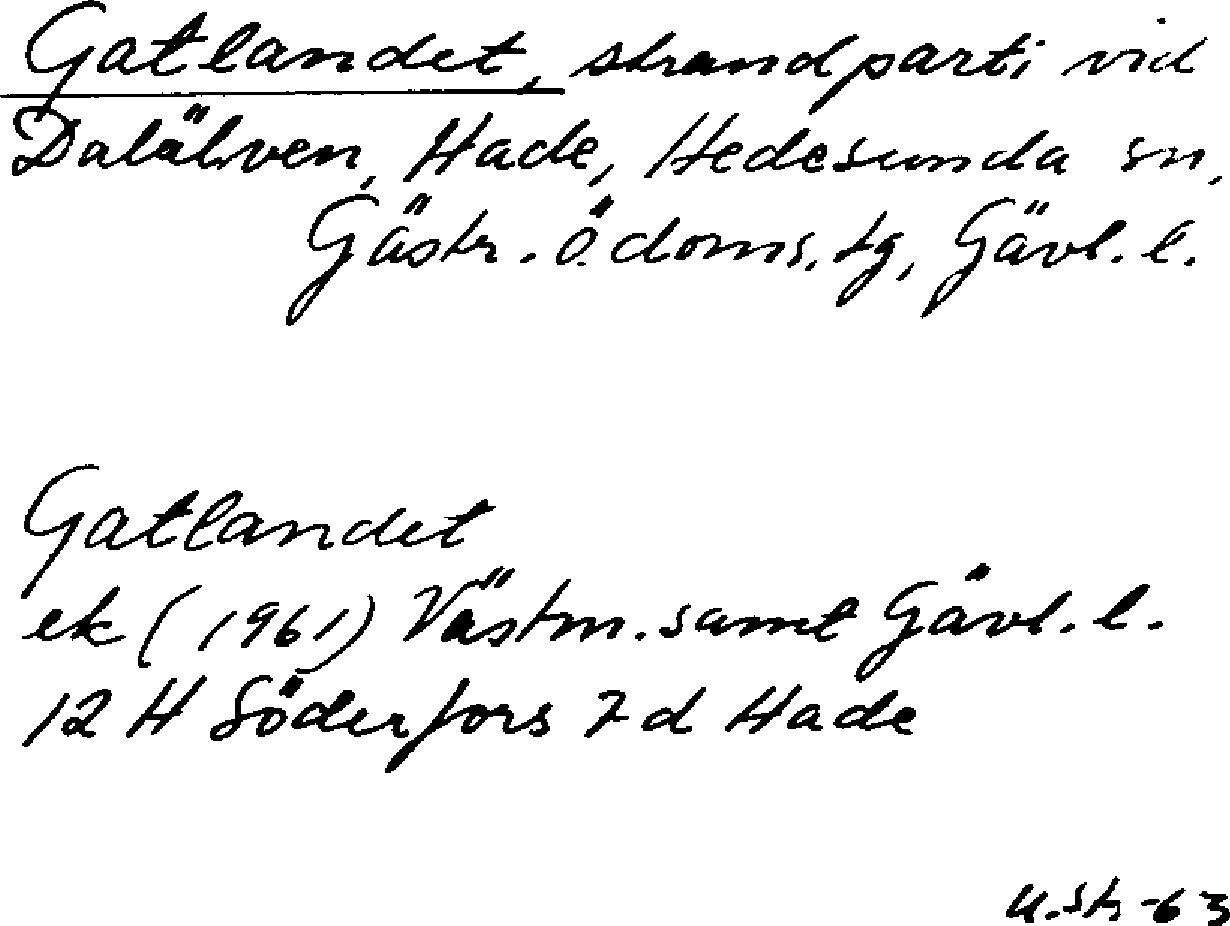 Gatlandet, strandparti vid
Dalälven, Hade, Hedesunda sn,
Gästr. ö. doms. tg, Gävl. l.
Gatlandet
ek (1961) Västm. samt Gävl. l.
12 H Söderfors 7 d Hade
-63